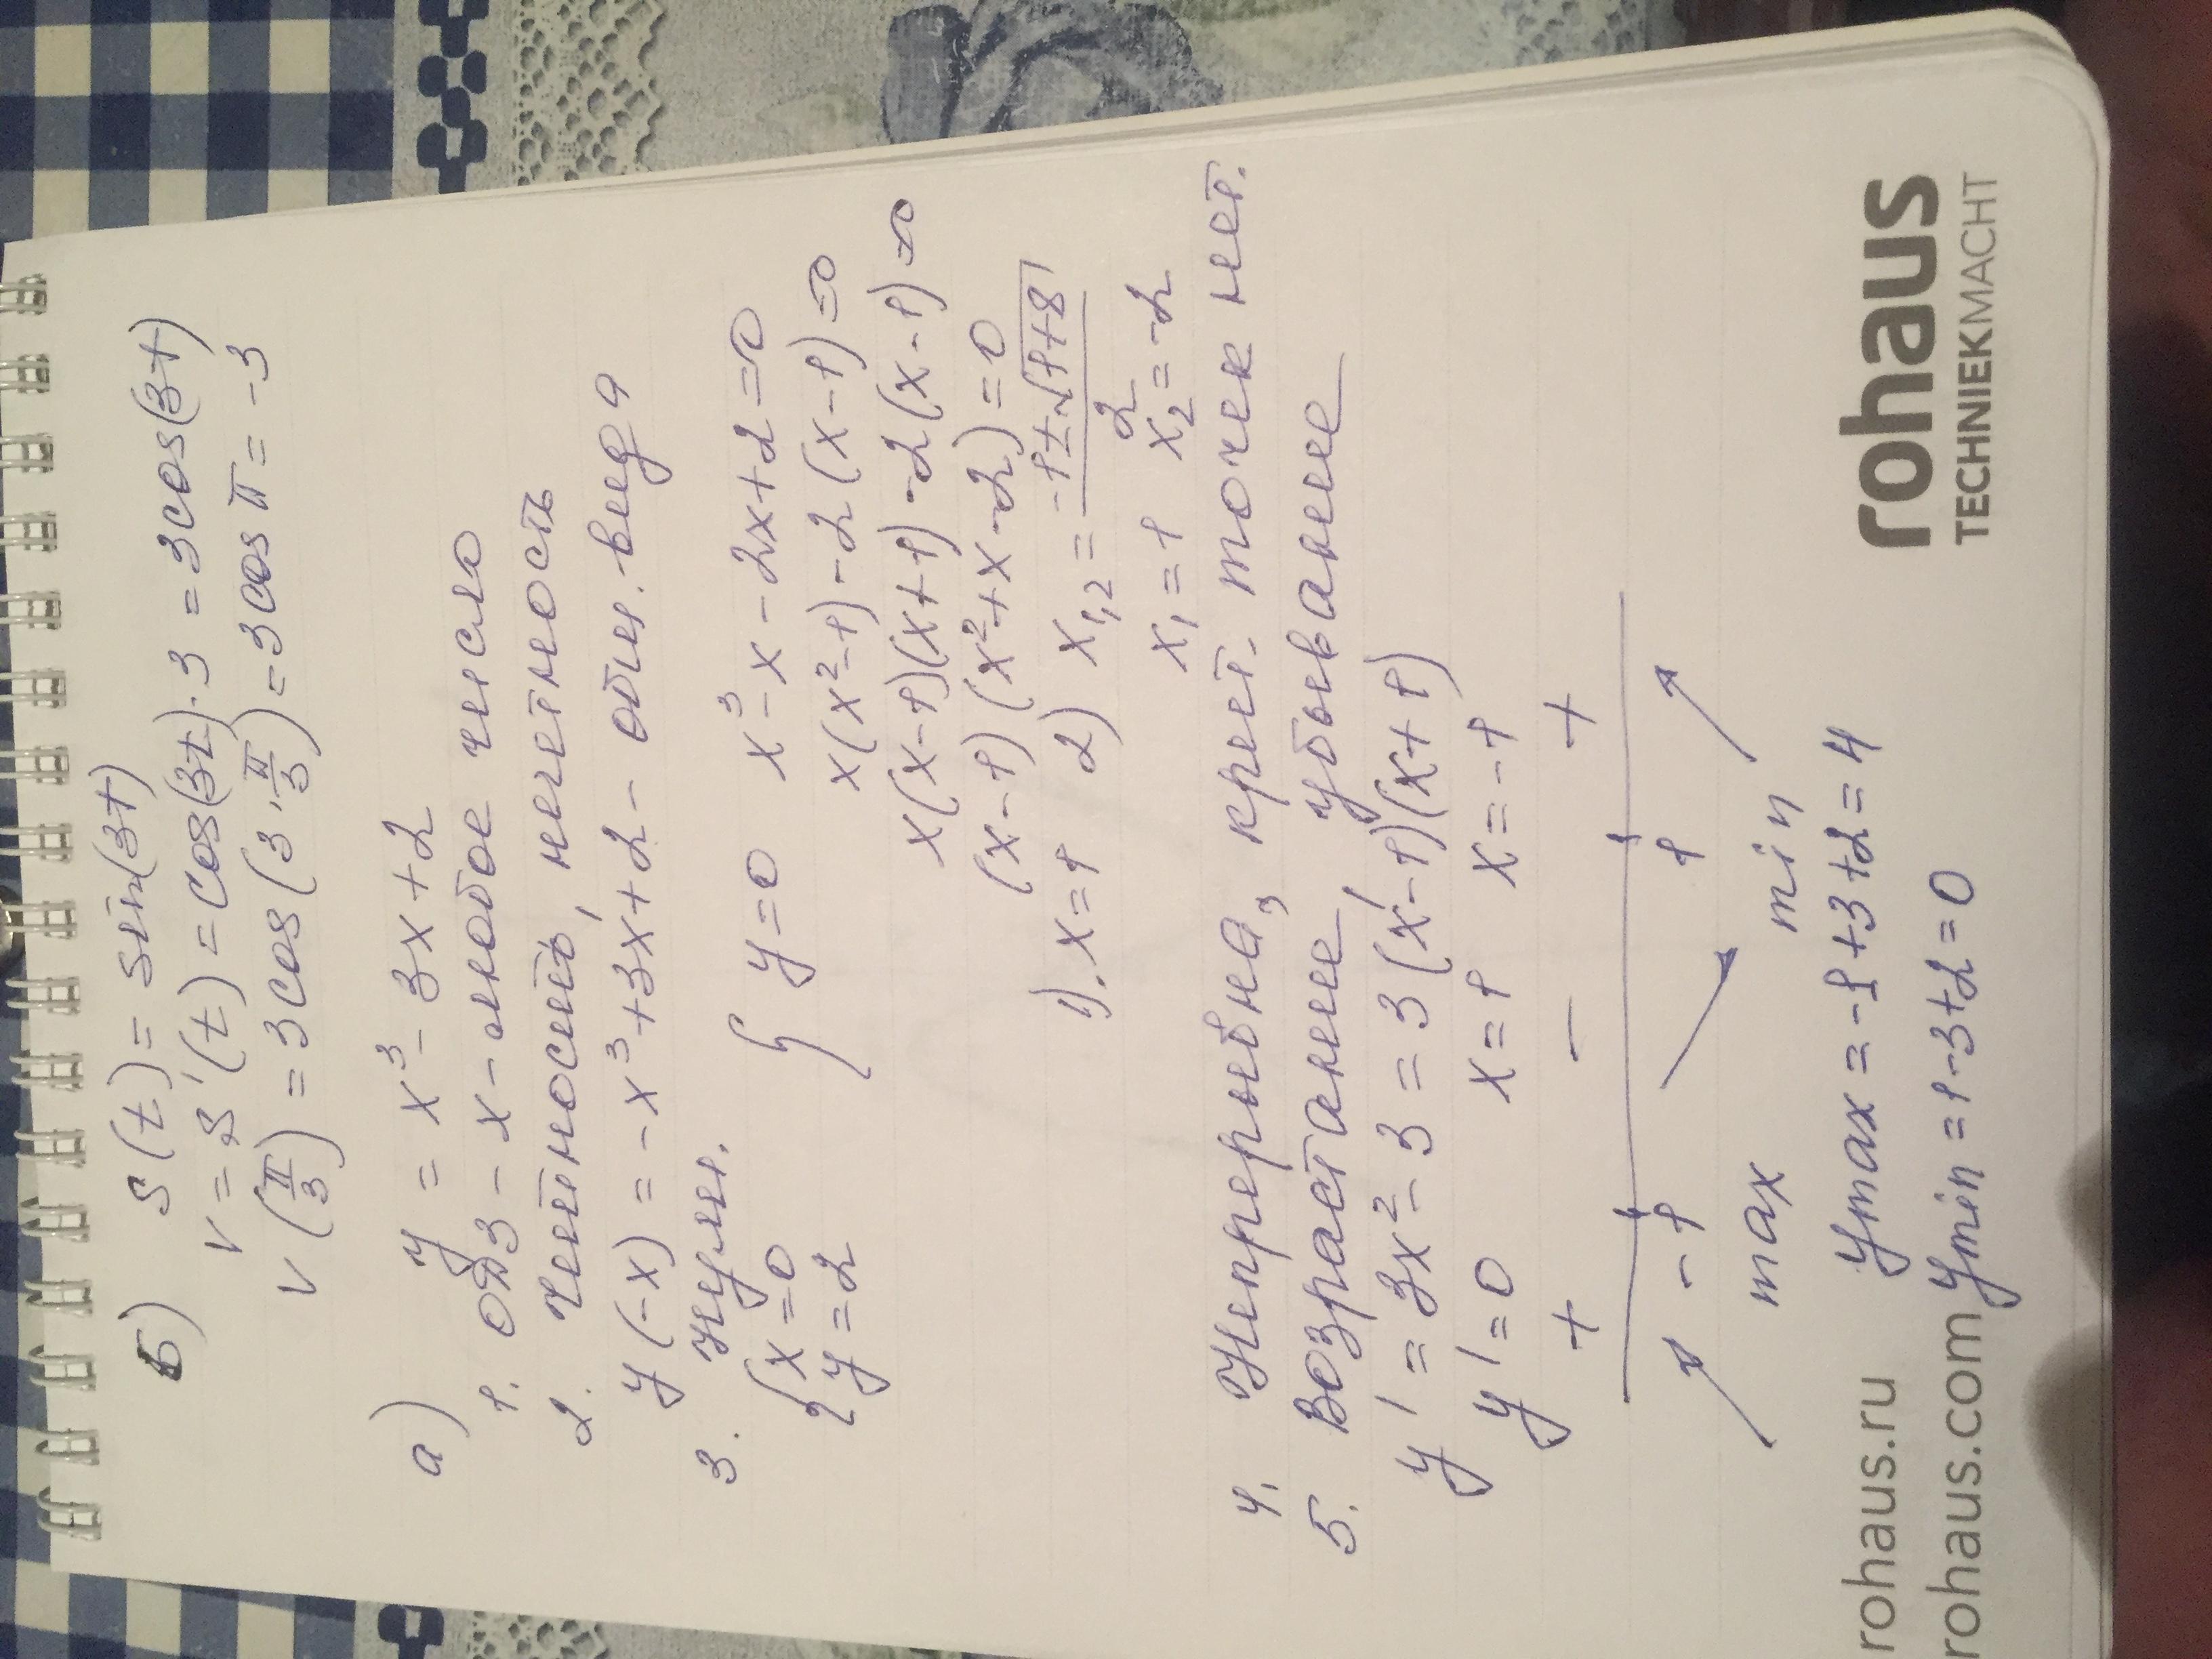 б) S(t) = sin(3t)
v = S'(t) = cos(3t)·3 = 3cos(3t)
v(π/3) = 3cos(3·π/3) = 3cosπ = -3
а) y = x³ - 3x + 2
1. ОДЗ - x - любое число
2. Четность, нечетность
y(-x) = -x³ + 3x + 2 - общ. вида
3. Нули.
{x = 0 { y = 0 x³ - x - 2x + 2 = 0
y = 2 x(x² - 1) - 2(x - 1) = 0
x(x - 1)(x + 1) - 2(x - 1) = 0
(x - 1)(x² + x - 2) = 0
1). x = 1 2) x₁,₂ = (-1 ± √(1+8))/2
x₁ = 1 x₂ = -2
4. Непрерывна, крит. точек нет.
5. Возрастание, убывание
y' = 3x² - 3 = 3(x - 1)(x + 1)
y' = 0 x = 1 x = -1
+ - +
-1 1
max min
ymax = -1 + 3 + 2 = 4
ymin = 1 - 3 + 2 = 0
rohaus.ru
rohaus.com
rohaus
TECHNIEKMACHT